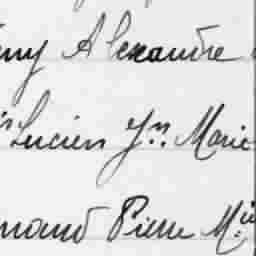 ny Alexandre
Lucien Jn. Marie
nand Pierre M.ie